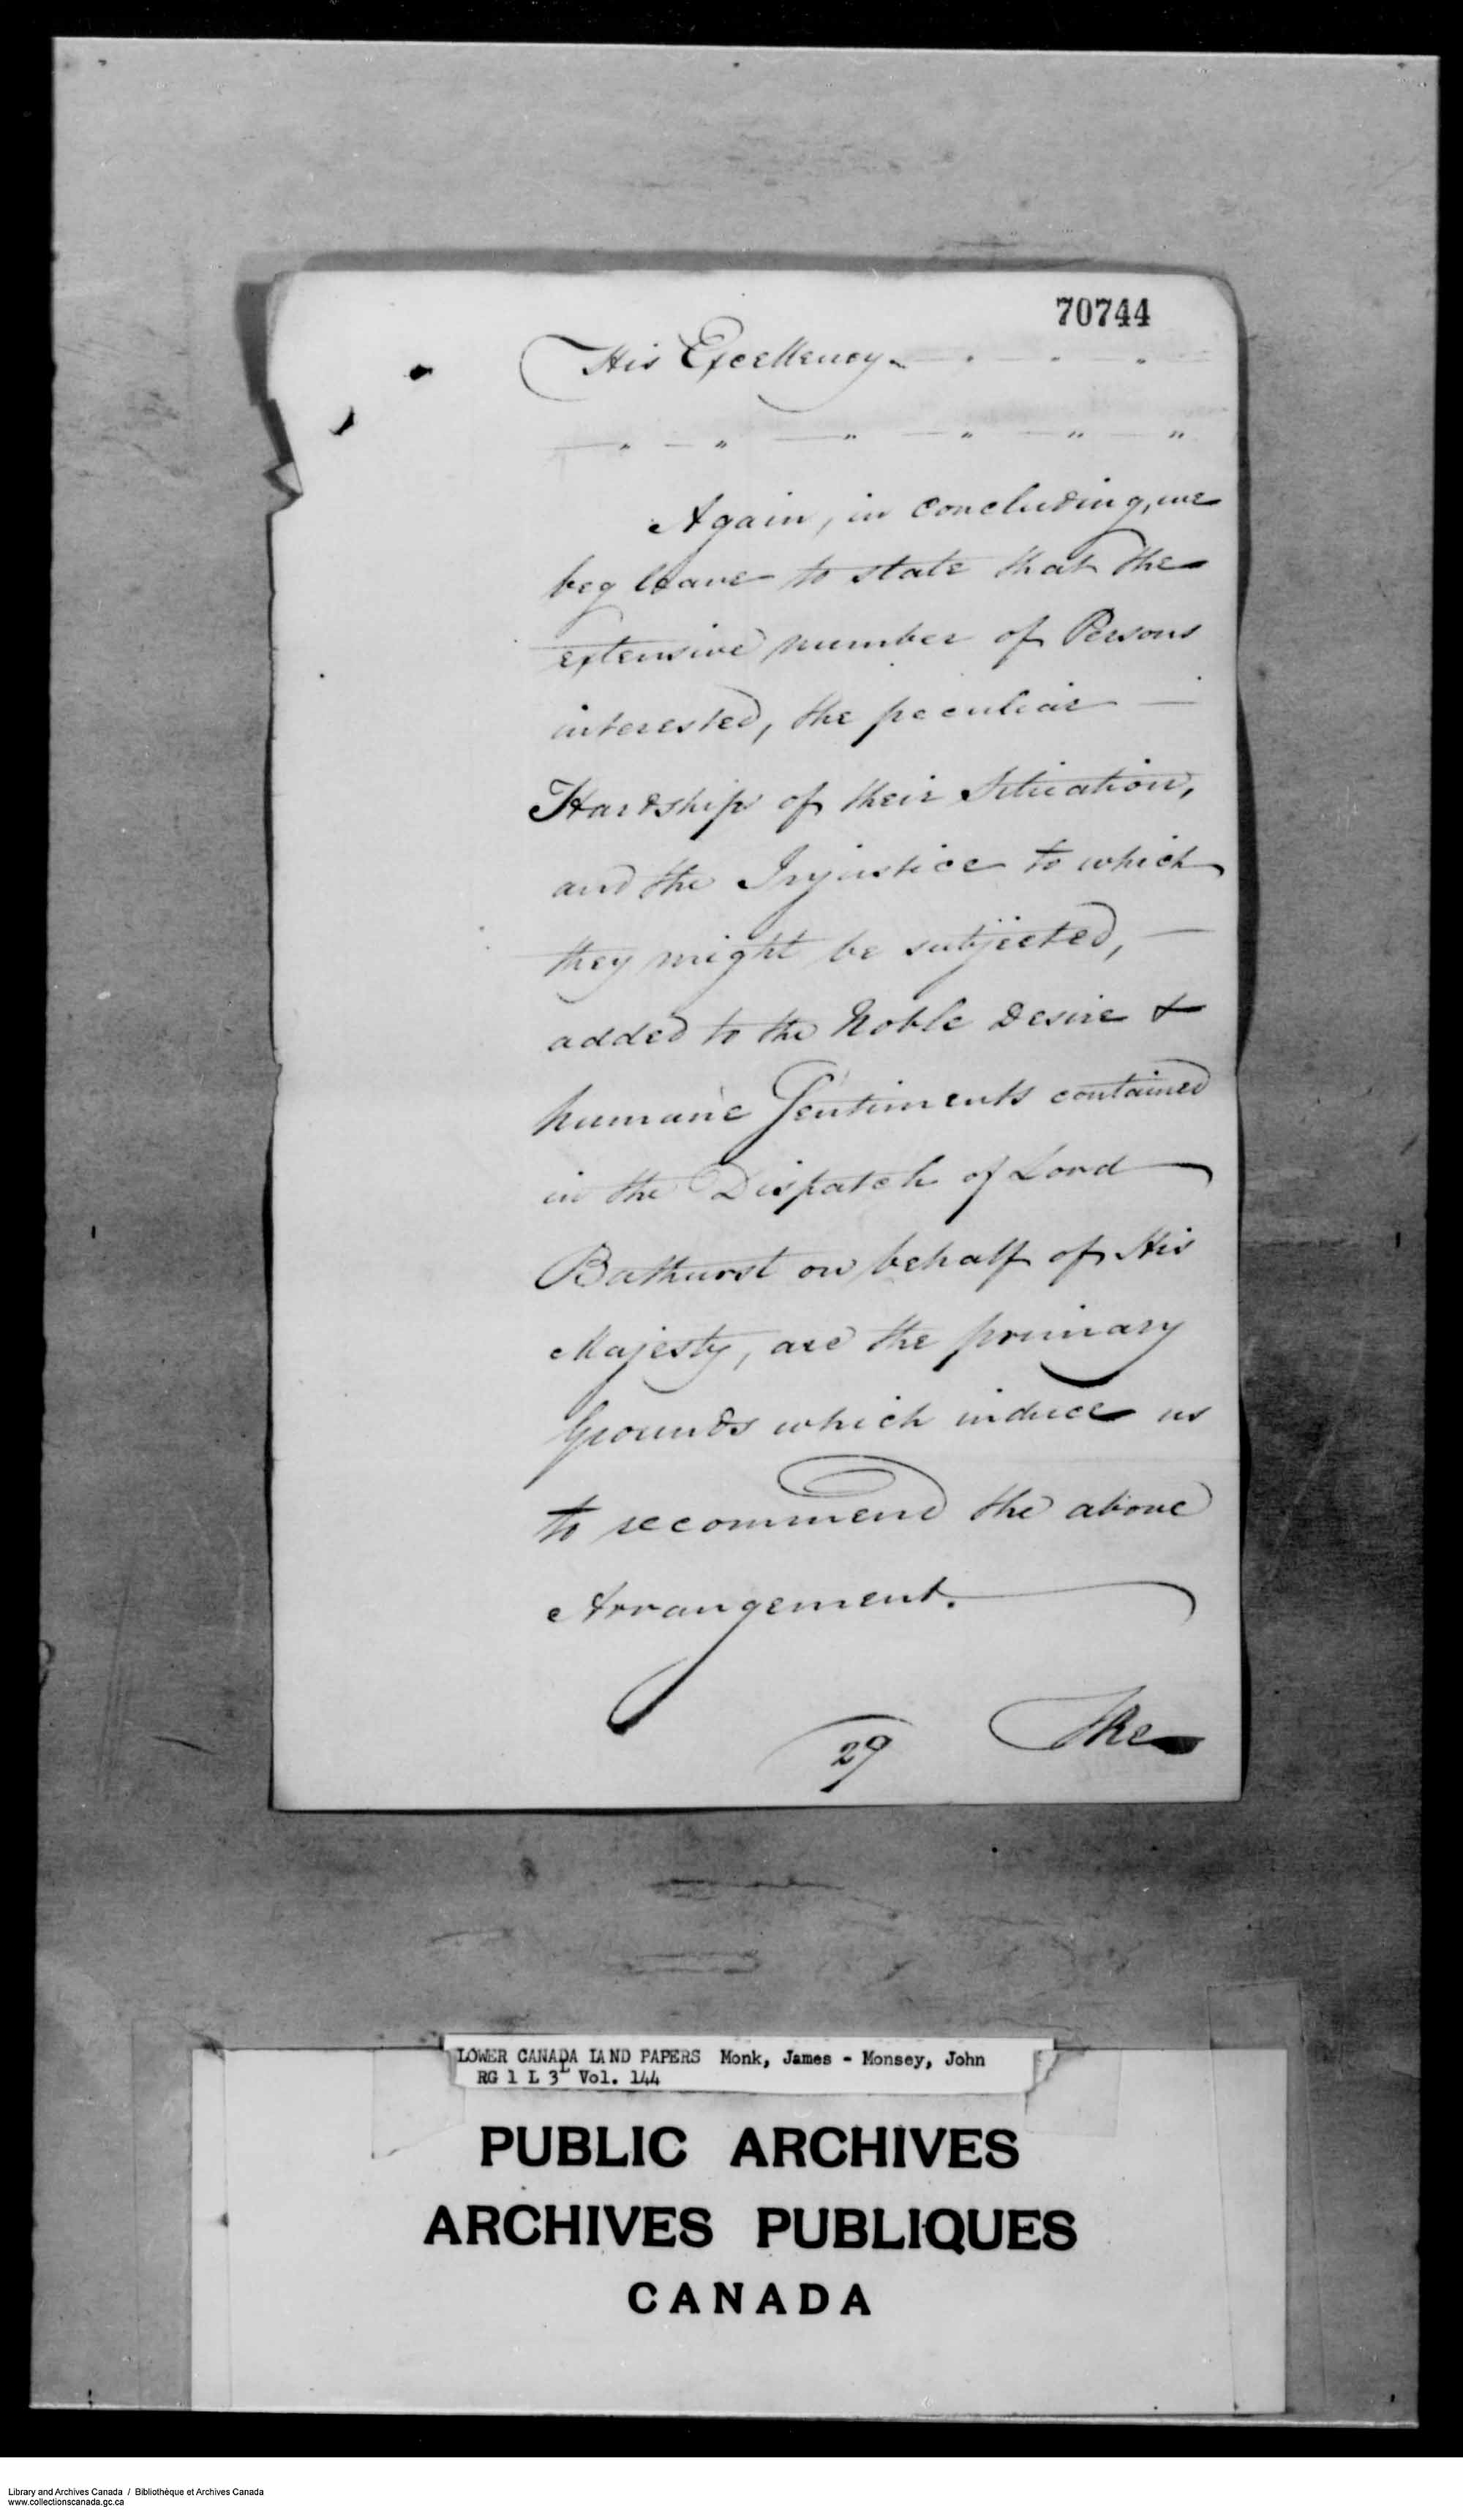 70744
His Excellency
Again, in concluding, we
beg leave to state that the
extensive number of Persons
interested, the peculiar —
Hardships of their Situation,
and the Injustice to which
they might be subjected, —
added to the Noble Desire &
humane Sentiments contained
in the Dispatch of Lord
Bathurst on behalf of His
Majesty, are the primary
Grounds which induce us
to recommend the above
Arrangement.
29 The
LOWER CANADA LAND PAPERS Monk, James - Monsey, John
RG 1 L 3L Vol. 144
PUBLIC ARCHIVES
ARCHIVES PUBLIQUES
CANADA
Library and Archives Canada / Bibliothèque et Archives Canada
www.collectionscanada.gc.ca